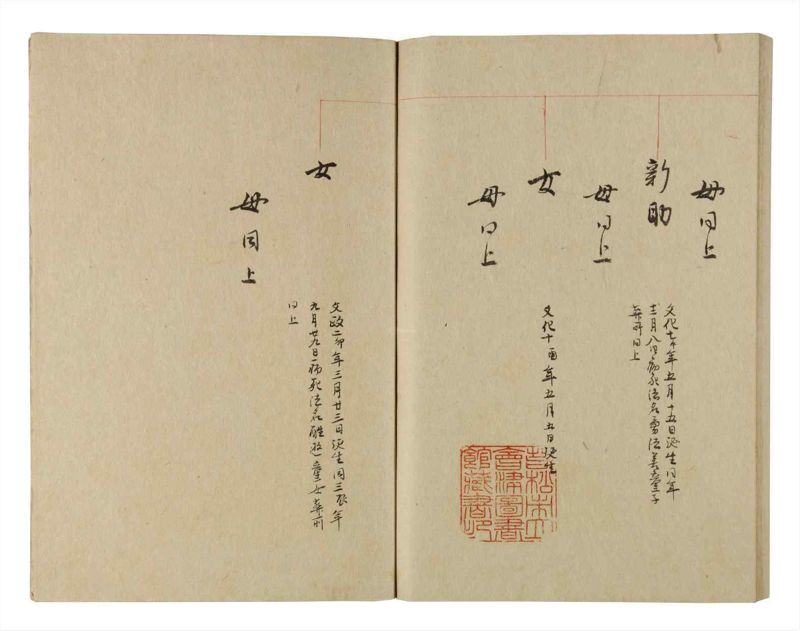 母同上
新助
文化七午年五月十五日誕生同年
十二月八日病死法名勇法童子
葬所同上
母同上
女
文化十酉年五月五日誕生
母同上
女
文政二卯年三月廿三日誕生同三辰年
九月廿九日病死法名童女葬所
同上
母同上
若松市立
會津圖書
館藏書印